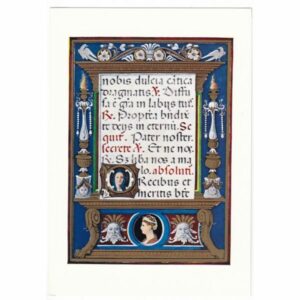 nobis dulcia cãtica
dragmatis: Diffu
sa ẽ grã in labijs tuis.
R̃. Proptea bñdixit
te deus in eternũ. Se
quit᷑. Pater noster.
secrete ℣. Et ne nos.
R̃. Sz liba nos a ma
lo. absoluti.
Recibus et
meritis bte